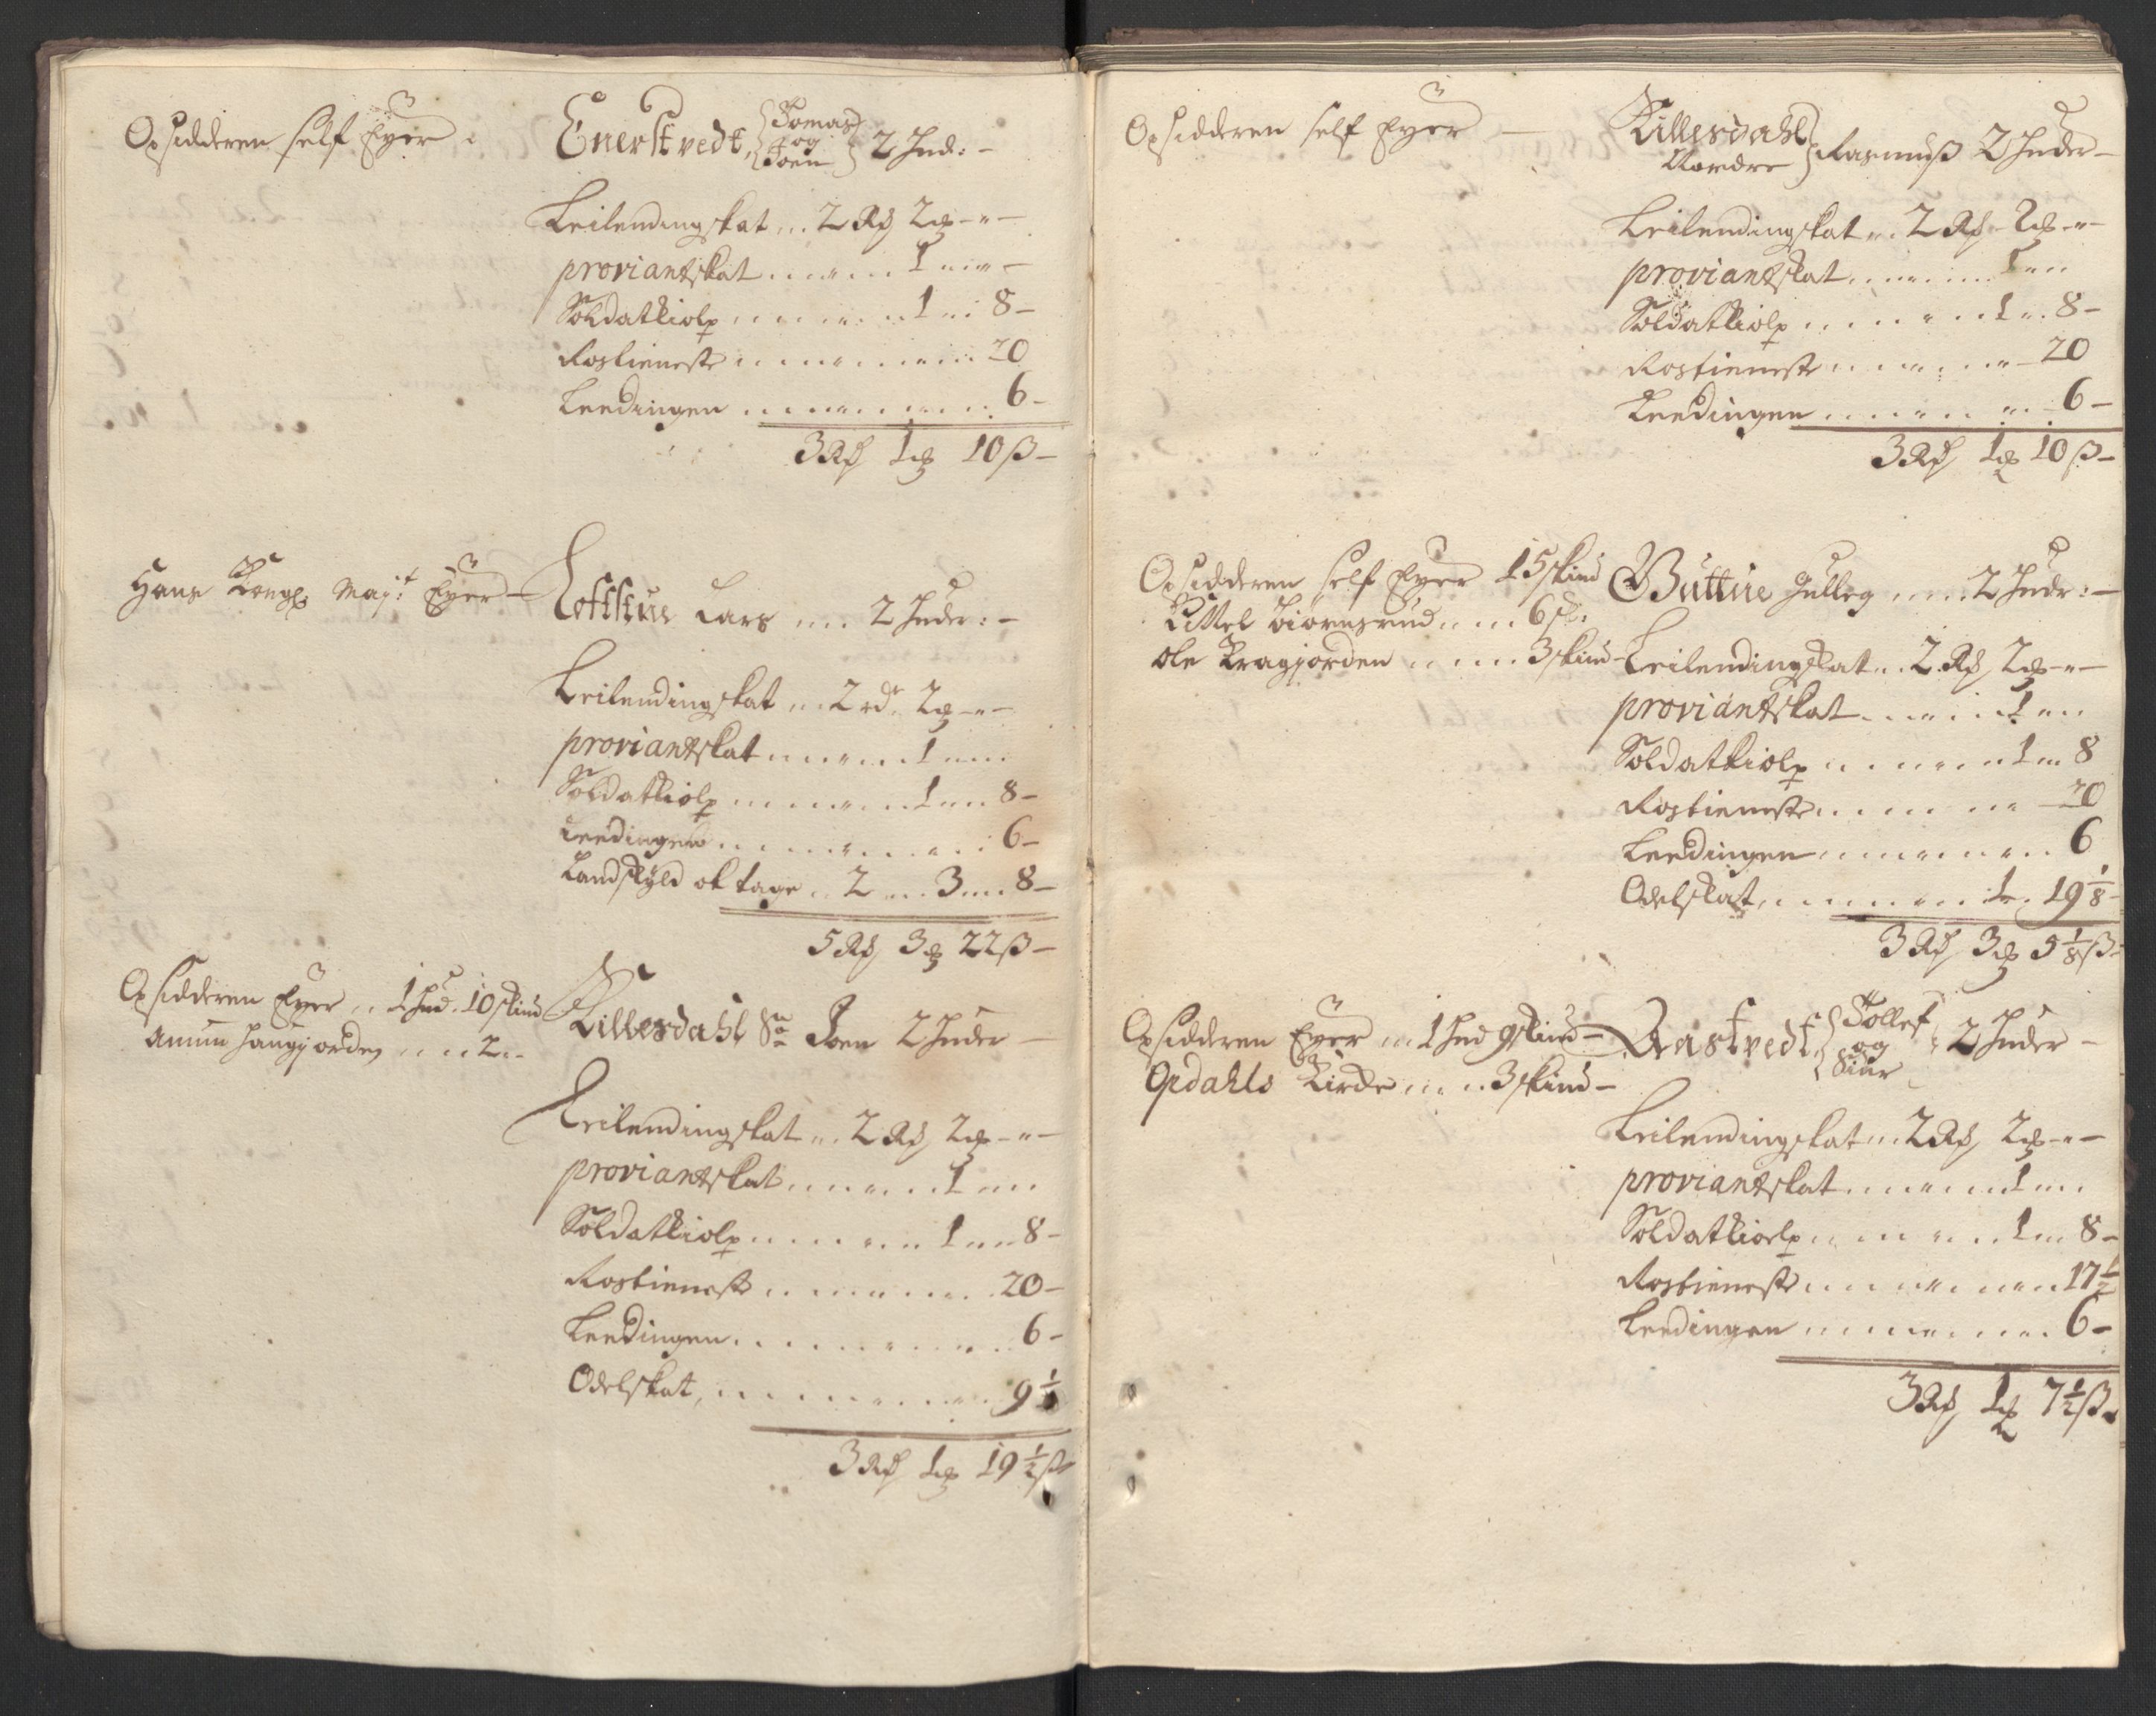 Opsidderen self Eyer
Enerstvedt, Tomas og Joen 2 Hud: -
Leilendingskat ... 2 Rd 2 -"-
proviantskat ... 1 -
Soldatthiolp ... 1 .. 8 -
Rostieneste ... 20
Leedingen ... 6 -
3 Rd 1 10 ß -
Hans Kongl: Maj:t Eyer -
Loftstue Lars ... 2 Huder: -
Leilendingskat ... 2 rd 2 -"-
proviantskat ... 1 ...
Soldatthiolp ... 1 ... 8 -
Leedingen ... 6 -
Landskyld ob tage .. 2 ... 3 ... 8 -
5 Rd 3 22 ß -
Opsidderen Eyer .. 1 Hud. 10 skind
Amun Haugjorden ... 2 ..
Killesdahl Joen 2 Huder -
Leilendingskat ... 2 Rd 2 -"-
proviantskat ... 1 ...
Soldatthiolp ... 1 ... 8 -
Rostieneste ... 20 -
Leedingen ... 6 -
Odelskat, ... 9
3 Rd 1 19 1/2 ß
Opsidderen self Eyer -
Killesdahl Nordre Rasmuß 2 Huder -
Leilendingskat ... 2 Rd - 2 -"-
proviantskat ... 1 ...
Soldatthiolp ... 1 .. 8 -
Rostieneste ... 20
Leedingen ... 6 -
3 Rd 1 10 ß -
Opsidderen self Eyer 15 skind
Kittel Biørnsrud ... 6 sk:
Ole Kragjorden ... 3 skind
Buttue Gulleg ... 2 Hudr: -
Leilendingskat .. 2 Rd 2 -"-
proviantskat ... 1 ...
Soldatthiolp ... 1 ... 8
Rostieneste ... 20
Leedingen ... 6
Odelskat, ... 1 .. 19 1/8 -
3 Rd 3 5 1/8 ß -
Opsidderen Eyer ... 1 Hud 9 skind -
Opdahls Kirke ... 3 skind -
Aastvedt, Tollef og Siur 2 Huder -
Leilendingskat ... 2 Rd 2 -"-
proviantskat ... 1 ...
Soldatthiolp ... 1 ... 8 -
Rostieneste ... 17 1/2
Leedingen ... 6 -
3 Rd 1 7 1/2 ß